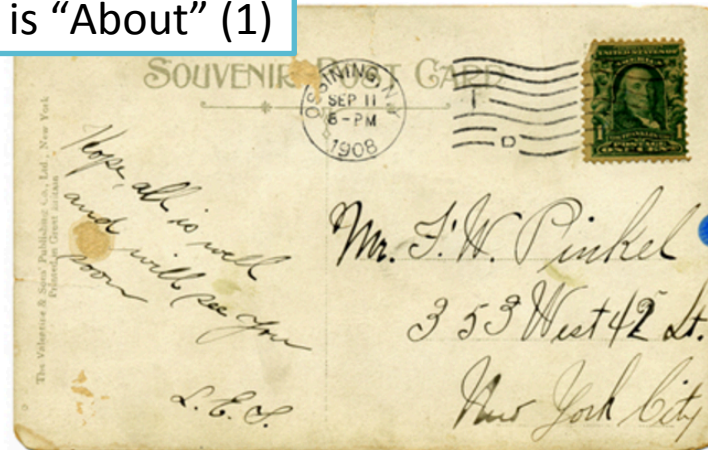 is “About” (1)
SOUVENIR POST CARD
OSSINING, N.Y.
SEP 11
6-PM
1908
UNITED STATES OF
AMERICA
1 1
The Valentine & Sons' Publishing Co., Ltd., New York
Printed in Great Britain
Hope, all is well
and will see you
soon
L.E.S.
Mr. F. W. Pinkel
353 West 42 St.
New York City